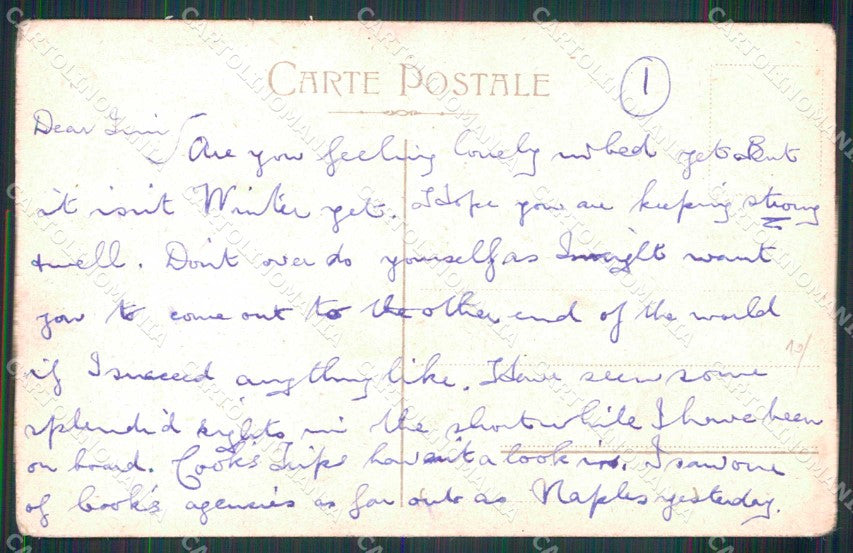 CARTE POSTALE
1
Dear Jim
Are you feeling lonely in bed yet. But
it isn't Winter yet. I Hope you are keeping strong
& well. Don't over do yourself as I might want
you to come out to the other end of the world
if I succeed anything like. Have seen some
splendid sights in the short while I have been
on board. Cook's Trips haven't a look in. I saw one
of Cook's agencies as far out as Naples yesterday.
CARTOLINOMANIA